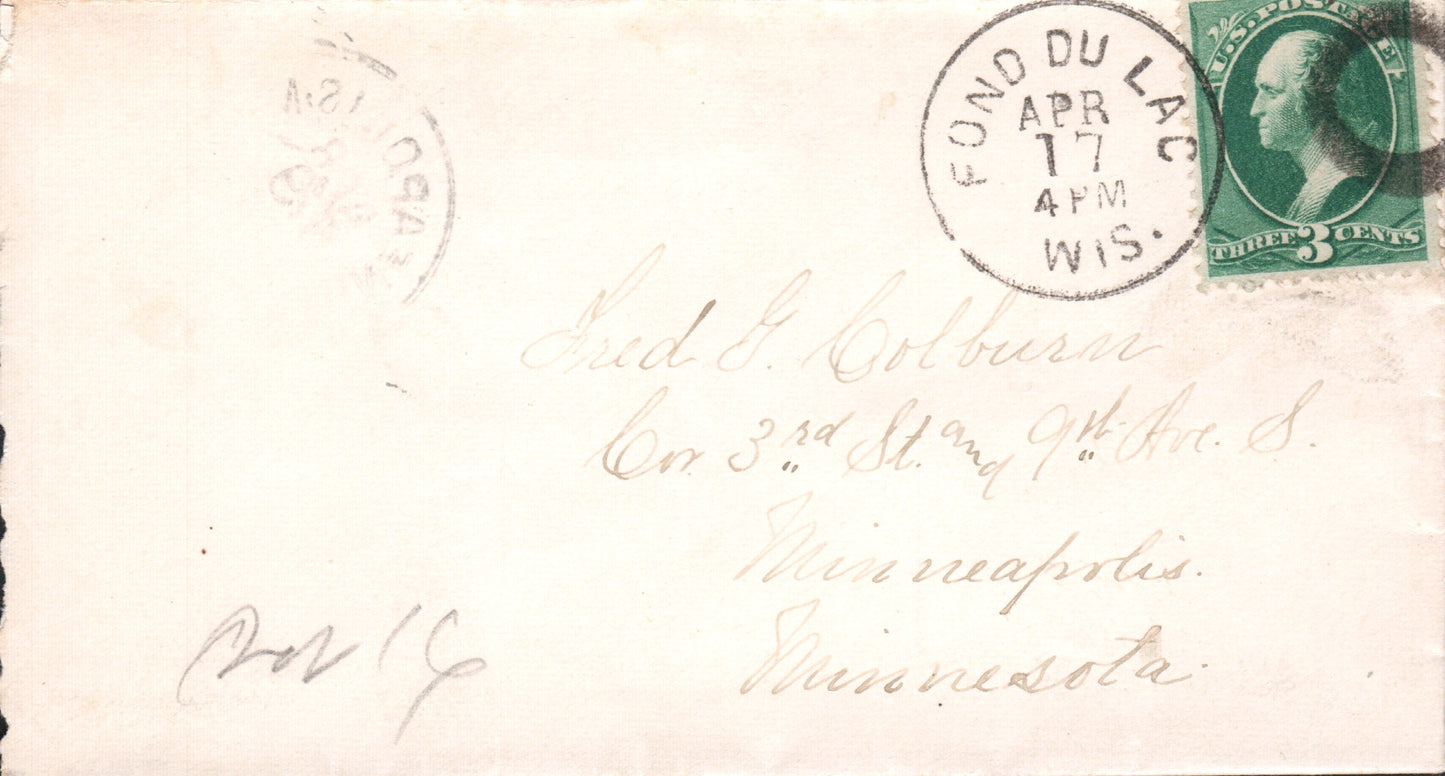 FOND DU LAC
APR
17
4 PM
WIS.
U.S. POSTAGE
THREE 3 CENTS
Fred G. Colburn
Cor. 3rd St. and 9th Ave. S.
Minneapolis.
Minnesota.
16